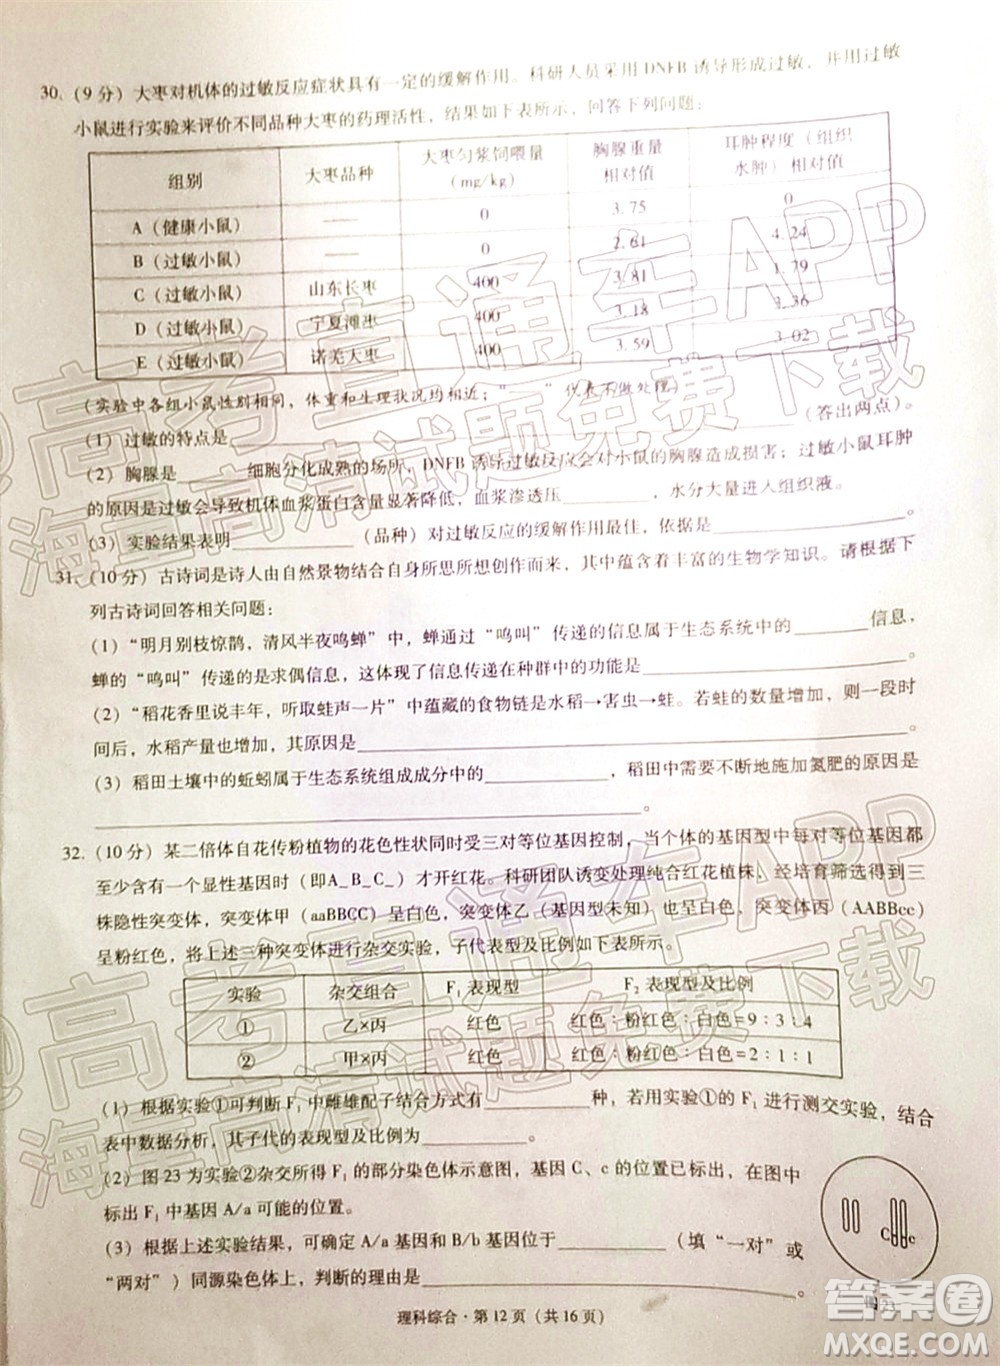 30.（9分）大枣对机体的过敏反应症状具有一定的缓解作用。科研人员采用DNFB诱导形成过敏，并用过敏
小鼠进行实验来评价不同品种大枣的药理活性，结果如下表所示，回答下列问题：
组别 大枣品种 大枣匀浆饲喂量（mg/kg） 胸腺重量相对值 耳肿程度（组织水肿）相对值
A（健康小鼠） —— 0 3.75 0
B（过敏小鼠） —— 0 2.61 4.24
C（过敏小鼠） 山东长枣 400 3.81 1.79
D（过敏小鼠） 宁夏滩枣 400 3.18 2.36
E（过敏小鼠） 诺羌大枣 400 3.59 3.02
（实验中各组小鼠性别相同，体重和生理状况均相近；“——”代表不做处理）
（1）过敏的特点是________（答出两点）。
（2）胸腺是______细胞分化成熟的场所，DNFB诱导过敏反应会对小鼠的胸腺造成损害；过敏小鼠耳肿
的原因是过敏会导致机体血浆蛋白含量显著降低，血浆渗透压________，水分大量进入组织液。
（3）实验结果表明________（品种）对过敏反应的缓解作用最佳，依据是________。
31.（10分）古诗词是诗人由自然景物结合自身所思所想创作而来，其中蕴含着丰富的生物学知识。请根据下
列古诗词回答相关问题：
（1）“明月别枝惊鹊，清风半夜鸣蝉”中，蝉通过“鸣叫”传递的信息属于生态系统中的________信息，
蝉的“鸣叫”传递的是求偶信息，这体现了信息传递在种群中的功能是________。
（2）“稻花香里说丰年，听取蛙声一片”中蕴藏的食物链是水稻→害虫→蛙。若蛙的数量增加，则一段时
间后，水稻产量也增加，其原因是________。
（3）稻田土壤中的蚯蚓属于生态系统组成成分中的________，稻田中需要不断地施加氮肥的原因是
________。
32.（10分）某二倍体自花传粉植物的花色性状同时受三对等位基因控制，当个体的基因型中每对等位基因都
至少含有一个显性基因时（即A_B_C_）才开红花。科研团队诱变处理纯合红花植株、经培育筛选得到三
株隐性突变体，突变体甲（aaBBCC）呈白色，突变体乙（基因型未知）也呈白色，突变体丙（AABBcc）
呈粉红色。将上述三种突变体进行杂交实验，子代表型及比例如下表所示。
实验 杂交组合 F₁表现型 F₂表现型及比例
① 乙×丙 红色 红色：粉红色：白色=9：3：4
② 甲×丙 红色 红色：粉红色：白色=2：1：1
（1）根据实验①可判断F₁中雌雄配子结合方式有________种，若用实验①的F₁进行测交实验，结合
表中数据分析，其子代的表现型及比例为________。
（2）图23为实验②杂交所得F₁的部分染色体示意图，基因C、c的位置已标出，请在图中
标出F₁中基因A/a可能的位置。
（3）根据上述实验结果，可确定A/a基因和B/b基因位于________（填“一对”或
“两对”）同源染色体上，判断的理由是________。
C c
图23
理科综合·第12页（共16页）
@高考直通车APP
海量高清试题免费下载
@高考直通车APP
海量高清试题免费下载
答案圈
MXQE.COM